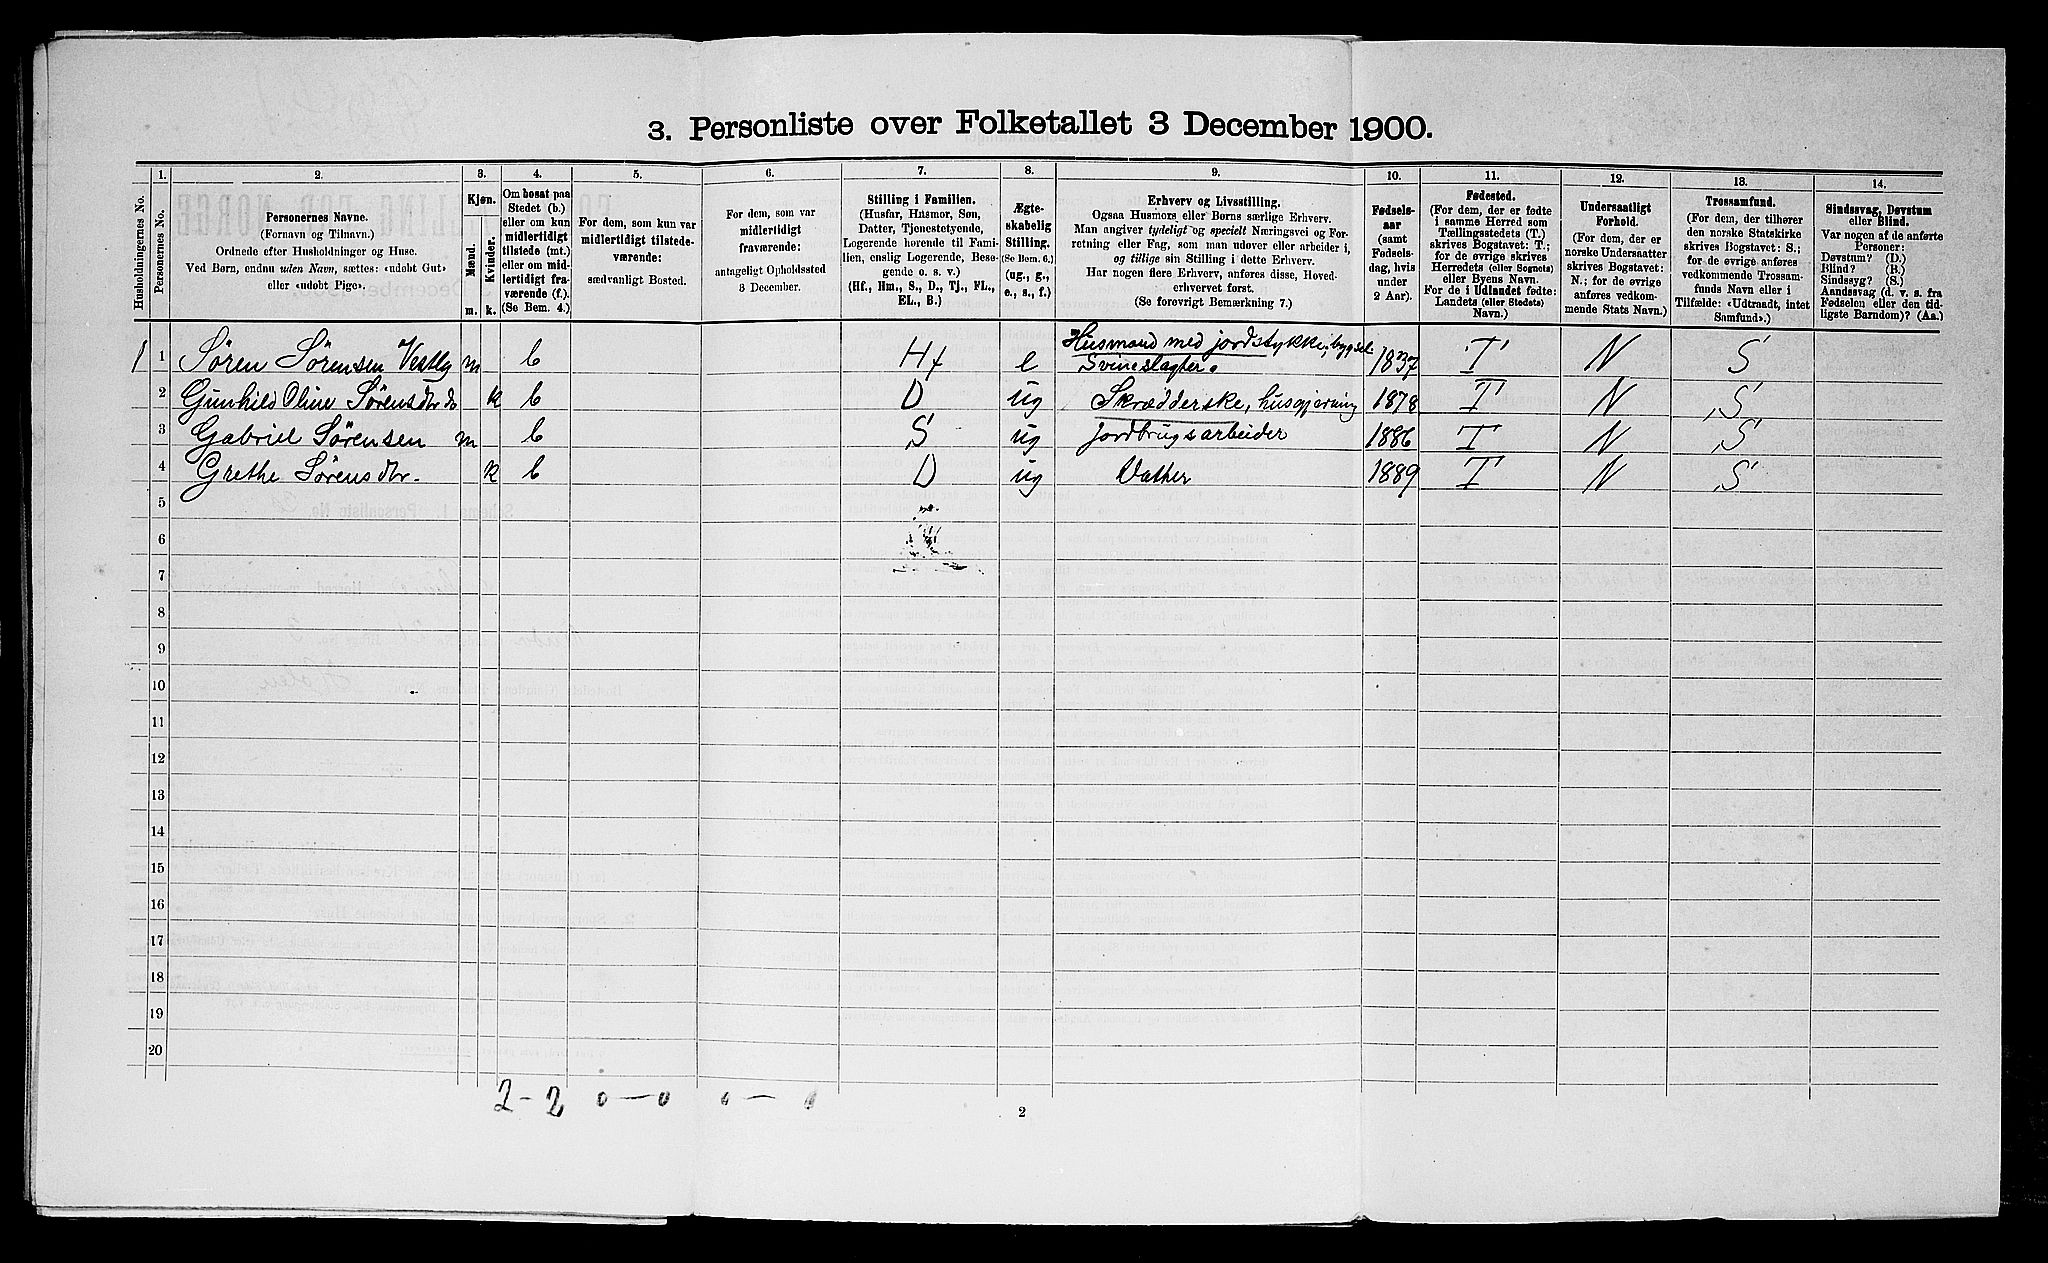 3. Personliste over Folketallet 3 December 1900.
1. 2. 3. 4. 5. 6. 7. 8. 9. 10. 11. 12. 13. 14.
Husholdningernes No.
Personernes No.
Personernes Navne.
(Fornavn og Tilnavn.)
Ordnede efter Husholdninger og Huse.
Ved Børn, endnu uden Navn, sættes: «udøbt Gut»
eller «udøbt Pige».
Kjøn.
Mænd.
Kvinder.
m. k.
Om bosat paa
Stedet (b.)
eller om kun
midlertidigt
tilstede (mt.)
eller om mid-
lertidigt fra-
værende (f.).
(Se Bem. 4.)
For dem, som kun var
midlertidigt tilstede-
værende:
sædvanligt Bosted.
For dem, som var
midlertidigt
fraværende:
antageligt Opholdssted
3 December.
Stilling i Familien.
(Husfar, Husmor, Søn,
Datter, Tjenestetyende,
Logerende hørende til Fami-
lien, enslig Logerende, Besø-
gende o. s. v.)
(Hf., Hm., S., D., Tj., FL.,
EL., B.)
Ægte-
skabelig
Stilling.
(Se Bem. 6.)
(ug., g.,
e., s., f.)
Erhverv og Livsstilling.
Ogsaa Husmors eller Børns særlige Erhverv.
Man angiver tydeligt og specielt Næringsvei og For-
retning eller Fag, som man udøver eller arbeider i,
og tillige sin Stilling i dette Erhverv.
Har nogen flere Erhverv, anføres disse, Hoved-
erhvervet først.
(Se forøvrigt Bemærkning 7.)
Fødsels-
aar
(samt
Fødsels-
dag, hvis
under
2 Aar).
Fødested.
(For dem, der er fødte
i samme Herred som
Tællingsstedets (T.)
skrives Bogstavet: T.;
for de øvrige skrives
Herredets (eller Sognets)
eller Byens Navn.
For de i Udlandet fødte:
Landets (eller Stedets)
Navn.)
Undersaatligt
Forhold.
(For dem, der er
norske Undersaatter
skrives Bogstavet:
N.; for de øvrige
anføres vedkom-
mende Stats Navn.)
Trossamfund.
(For dem, der tilhører
den norske Statskirke
skrives Bogstavet: S.;
for de øvrige anføres
vedkommende Trossam-
funds Navn eller i
Tilfælde: «Udtraadt, intet
Samfund».)
Sindssvag, Døvstum
eller Blind.
Var nogen af de anførte
Personer:
Døvstum? (D.)
Blind? (B.)
Sindssyg? (S.)
Aandssvag (d. v. s. fra
Fødselen eller den tid-
ligste Barndom)? (Aa.)
1 1 Søren Sørensen Vestby m b Hf e Husmand med jordstykke, bygsel. Svineslagter. 1837 T N S
2 Gunhild Oline Sørensdtr do k b D ug Skrædderske, husgjerning 1878 T N S
3 Gabriel Sørensen m b S ug jordbrugsarbeider 1886 T N S
4 Grethe Sørensdtr. k b D ug Datter 1889 T N S
5
6
7
8
9
10
11
12
13
14
15
16
17
18
19
20
2 - 2 0 — 0 0 — 0
2